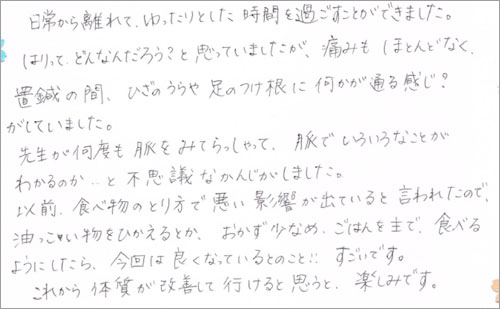 日常から離れて、ゆったりとした時間を過ごすことができました。
はりって、どんなんだろう?と思っていましたが、痛みもほとんどなく、
置鍼の間、ひざのうらや足のつけ根に何かが通る感じ?
がしていました。
先生が何度も脈をみてらっしゃって、脈でいろいろなことが
わかるのか‥と不思議なかんじがしました。
以前、食べ物のとり方で悪い影響が出ていると言われたので、
油っこい物をひかえるとか、おかず少なめ、ごはんを主で、食べる
ようにしたら、今回は良くなっているとのこと!! すごいです。
これから体質が改善して行けると思うと、楽しみです。